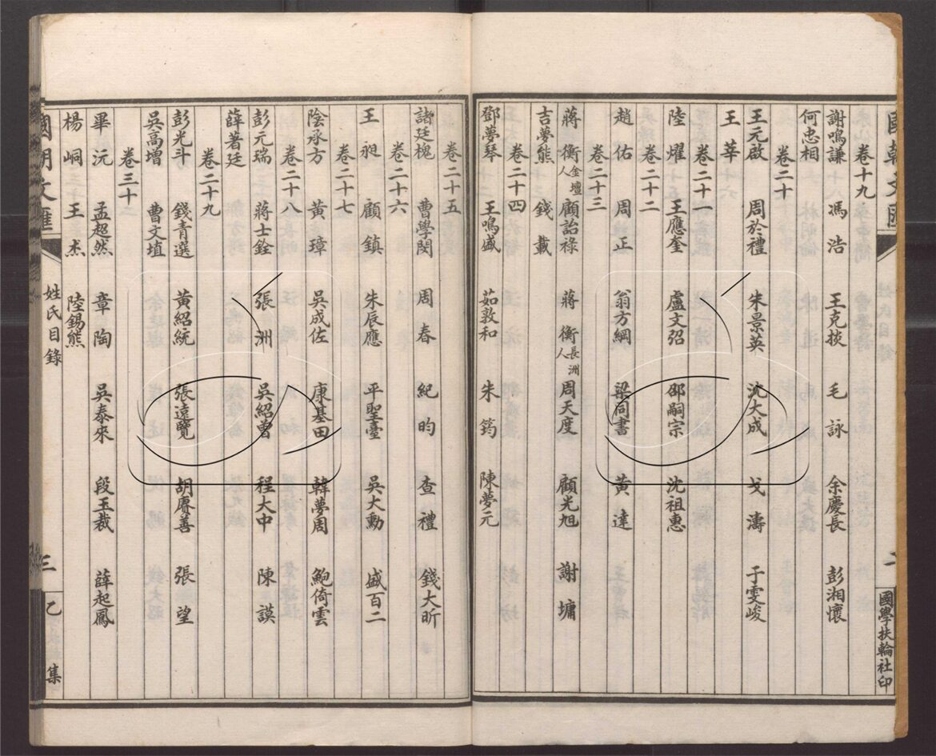 卷十九
謝鳴謙 馮浩 王克掞 毛詠 余慶長 彭湘懷
何忠相
卷二十
王元啟 周於禮 朱景英 沈大成 戈濤 于雯峻
王華
卷二十一
陸燿 王應奎 盧文弨 邵嗣宗 沈祖惠
卷二十二
趙佑 周正 翁方綱 梁同書 黃達
卷二十三
蔣衡金壇人 顧詒祿 蔣衡長洲人 周天度 顧光旭 謝墉
吉夢熊 錢載
卷二十四
鄧夢琴 王鳴盛 茹敦和 朱筠 陳夢元
國學扶輪社印
卷二十五
諸廷槐 曹學閔 周春 紀昀 查禮 錢大昕
卷二十六
王昶 顧鎮 朱辰應 平聖臺 吳大勳 盛百二
卷二十七
陰承方 黃璋 吳成佐 康基田 韓夢周 鮑倚雲
卷二十八
彭元瑞 蔣士銓 張洲 吳紹曾 程大中 陳謨
薛著廷
卷二十九
彭光斗 錢青選 黃紹統 張遠覽 胡賡善 張望
吳高增 曹文埴
卷三十
畢沅 孟超然 章陶 吳泰來 段玉裁 薛起鳳
楊峒 王杰 陸錫熊
國朝文匯 姓氏目錄 三 乙集